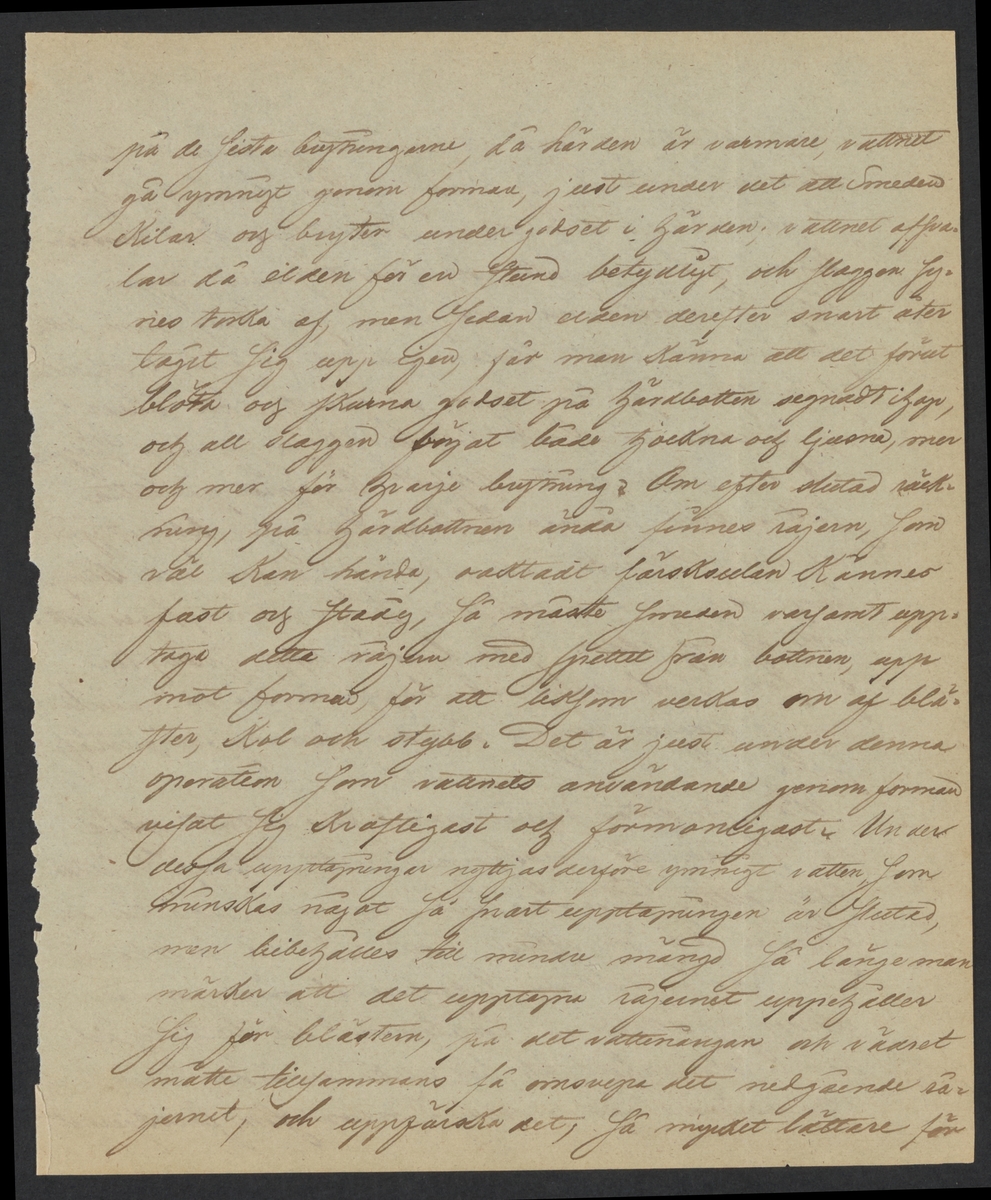 på de sista brytningarne, då härden är varmare, vattnet
gå ymnigt genom forman, just under det att Smeden
Kilar och bryter under godset i härden; vattnet afsva-
lar då elden för en stund betydligt, och slaggen sy-
nes torka af, men sedan elden derefter snart åter
tagit sig upp igen, får man känna att det förut
blöta och skurna godset på härdbotten segnadt ihop,
och all slaggen börjat både tjockna och ljusna, mer
och mer för hvarje brytning. Om efter slutad räck-
ning, på härdbottnen ändå finnes råjern, som
väl kan hända, oaktadt färsksulan kännes
fast och stadig, så måste Smeden varsamt upp-
taga detta råjern med spettet från bottnen, upp
mot forman, för att liksom verkas om af blä-
ster, kol och stybb. Det är just under denna
operation som vattnets användande genom forman
visat sig kraftigast och förmonligast. Under
dessa upptagningar nyttjas derföre ymnigt vatten, som
minskas något så snart upptagningen är slutad,
men bibehålles till mindre mängd så länge man
märker att det upptagna råjernet uppehåller
sig för blästern, på det vattenångan och vädret
måtte tillsammans få omsvepa det nedgående rå-
jernet, och uppfärska det, så mycket lättare för